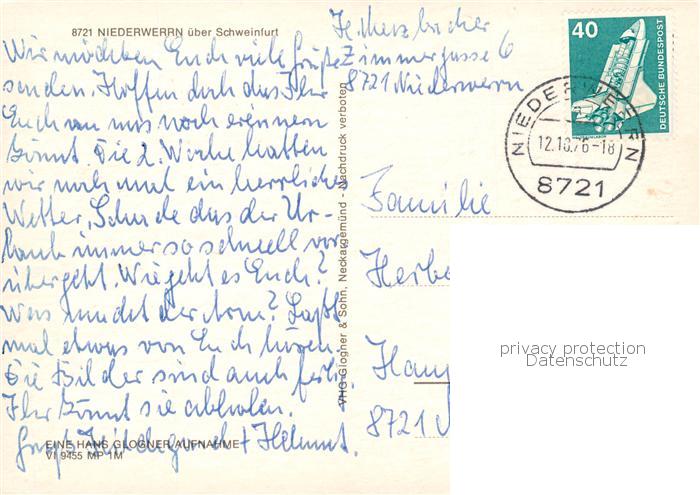 8721 NIEDERWERRN über Schweinfurt
H. Merzbacher
Zimmergasse 6
8721 Niederwerrn
Wir möchten Euch viele Grüße
senden. Hoffen doch das Ihr
Euch an uns noch erinnern
könnt. Die 2. Woche hatten
wir noch mal ein herrliches
Wetter, Schade das der Ur-
laub immer so schnell vor
übergeht. Wie geht es Euch?
Was macht der Arm? Laßt
mal etwas von Euch hören.
Die Bilder sind auch fertig.
Ihr könnt sie abholen.
Gruß Hildegard + Helmut.
EINE HANS GLOGNER AUFNAHME
VI 9455 MP 1M
VHG Glogner & Sohn, Neckargemünd - Nachdruck verboten
40
DEUTSCHE BUNDESPOST
NIEDERWERRN
12.10.76-18
8721
Familie
Herbe
Hau
8721
privacy protection
Datenschutz